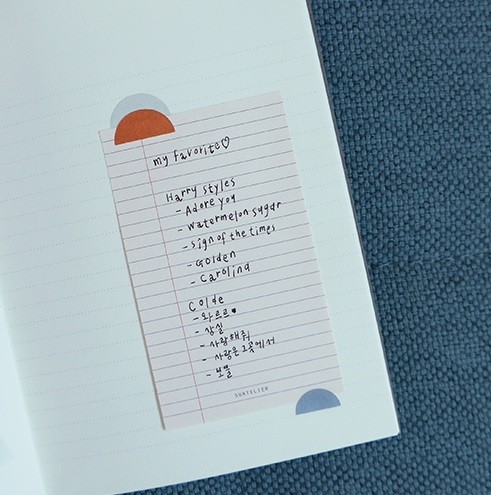 my favorite♡
Harry styles
- Adore you
- Watermelon sugar
- sign of the times
- Golden
- Carolina
Colde
- 와르르
- 상실
- 사랑해줘
- 사랑은 그곳에서
- 보물
SUNTELIER